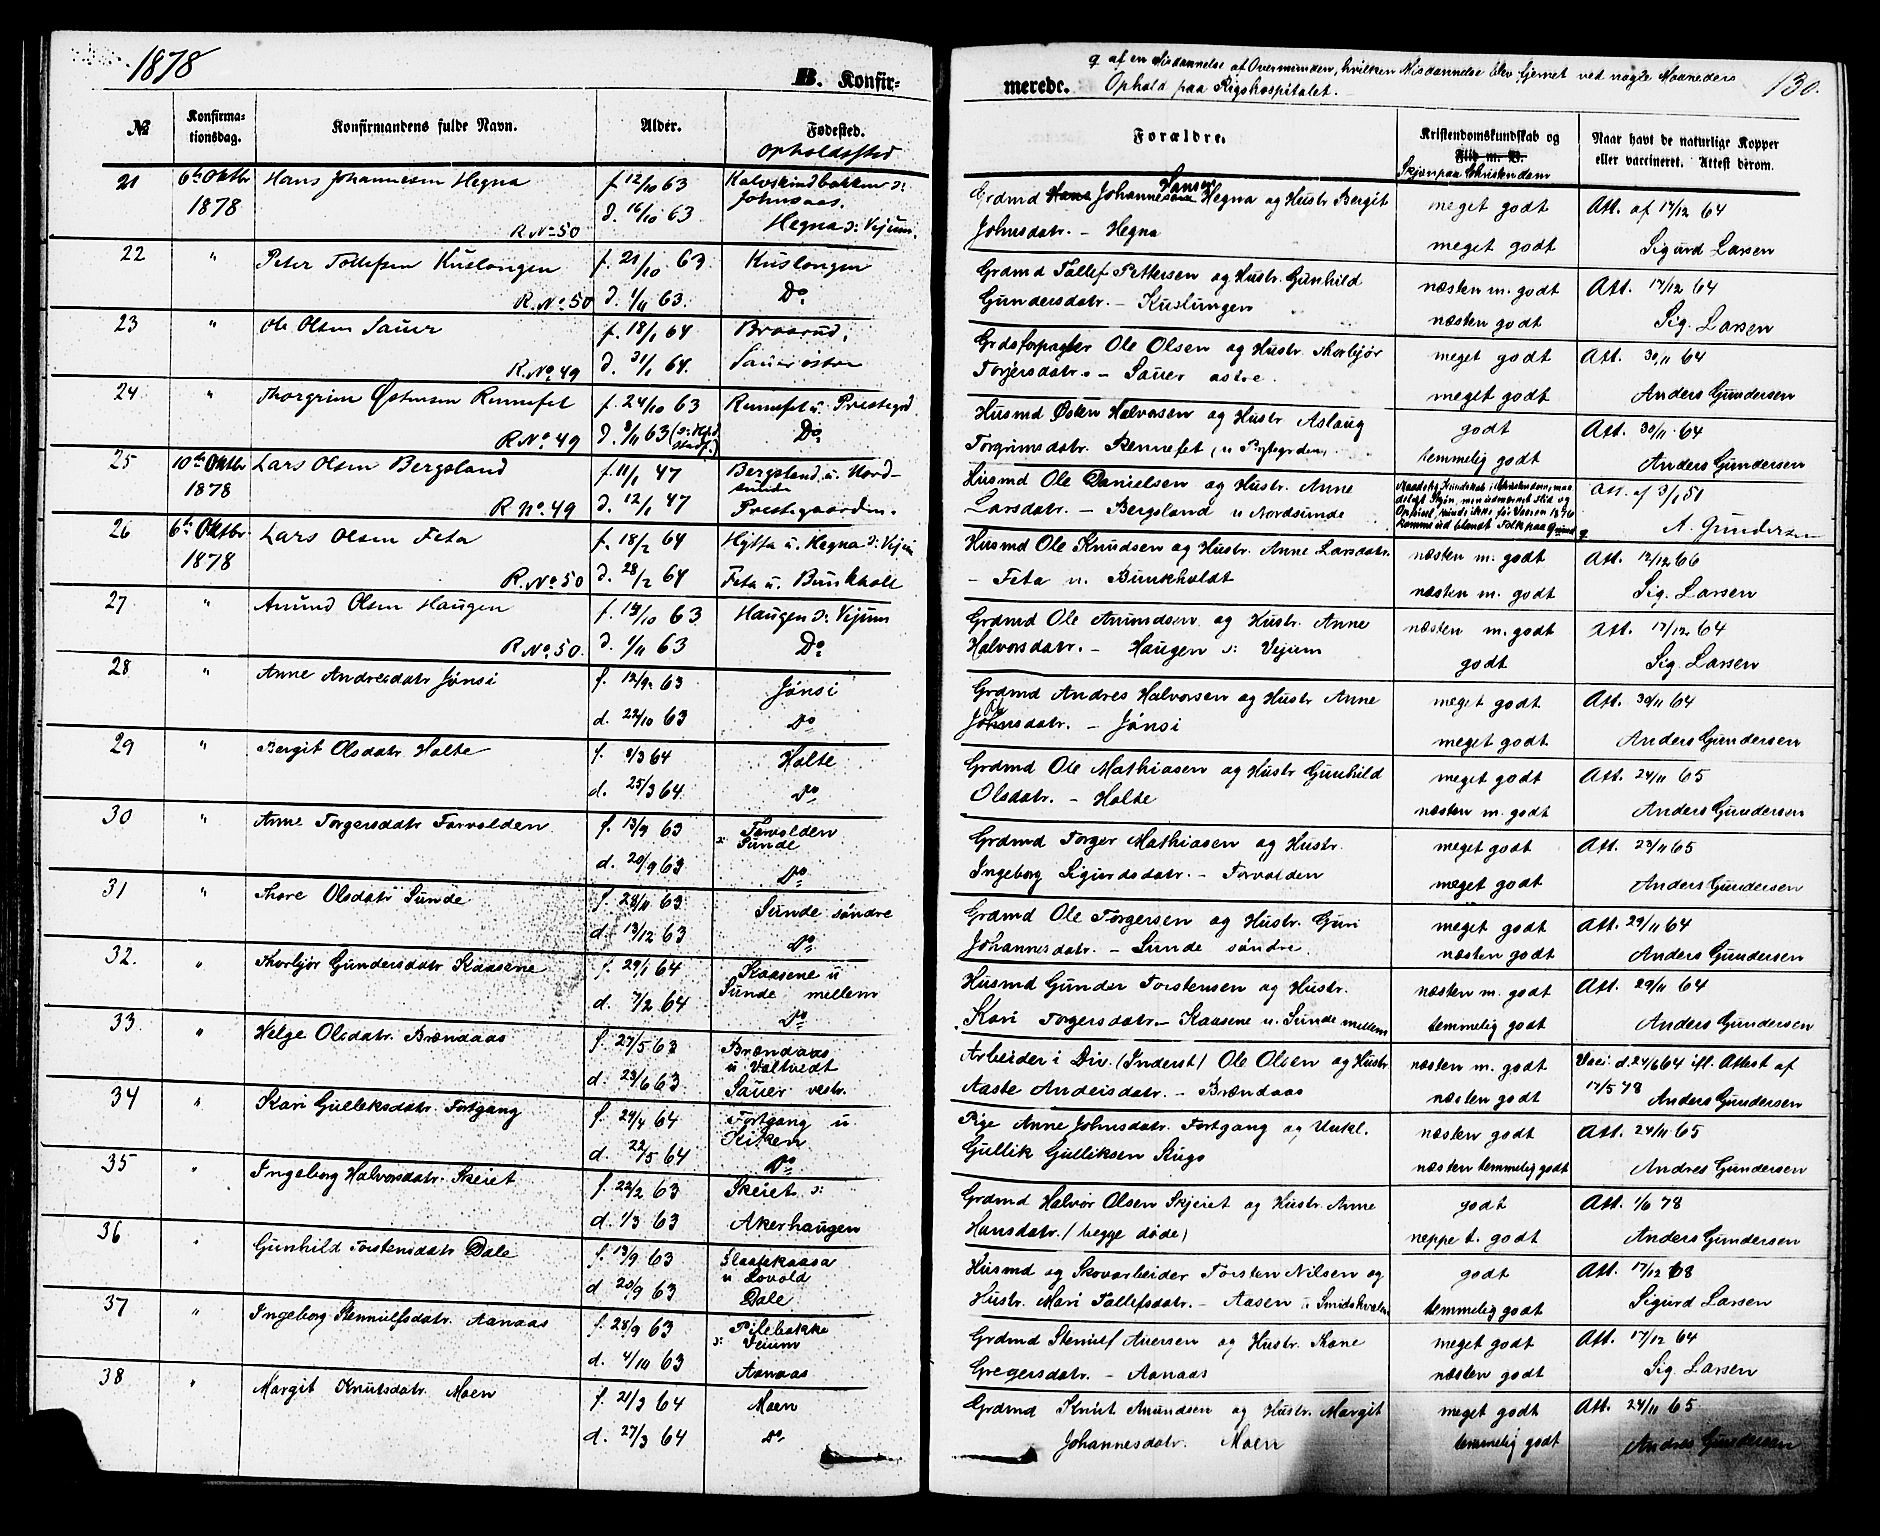 1878
B. Konfir-
№
Konfirma-
tionsdag.
Konfirmandens fulde Navn.
Alder.
Fødested.
Opholdssted
21 6te Oktbr 1878 Hans Johannesen Hegna R. No 50 f. 12/10 63 d. 16/10 63 Kalvskindbakken s: Johnsaas. Hegna s: Vejum.
22 " Peter Tollefsen Kuslongen R. No 50 f. 21/10 63 d. 1/11 63. Kuslongen Do
23 " Ole Olsen Sauer R. No. 49 f. 18/1 64 d. 31/1 64. Braarud, Sauer østre
24 " Thorgrim Østensen Rennefet R. No. 49 f. 24/10 63 d. 8/11 63 Rennefet u. Prestegrd. Do
25 10de Oktbr 1878 Lars Olsen Bergsland R No. 49 f. 11/1 47 d. 12/1 47 Bergsland u. Nordsunde Prestegaarden.
26 6te Oktbr 1878 Lars Olsen Feta R. No. 50 f. 18/2 64 d. 28/2 64 Hytta u. Hegna s: Vejum Feta u. Bunkholt
27 " Amund Olsen Haugen R. No. 50. f. 14/10 63 d. 1/11 63 Haugen s: Vejum Do
28 " Anne Andresdatr Jønsi f. 12/9 63 d. 22/10 63 Jønsi Do
29 " Bergit Olsdatr. Holte f. 8/3 64 d. 25/3 64 Holte Do
30 " Anne Torgersdatr Torvolden f. 13/9 63 d. 20/9 63 Torvolden s: Sunde Do
31 " Thore Olsdatr Sunde f. 28/11 63 d. 13/12 63 Sunde søndre Do
32. " Thorbjør Gundersdatr Kaasene f. 29/1 64 d. 7/2 64 Kaasene u Sunde mellem Do
33 " Helge Olsdatr. Brændaas f. 27/5 63 d. 23/6 63 Brændaas u. Valtvedt Sauer vestr.
34 " Kari Gulleksdatr. Fortgang f. 24/4 64 d. 22/5 64 Fortgang u. Do
35 " Ingeborg Halvorsdatr. Skeiet f. 22/2 63 d. 1/3 63 Skeiet s: Akerhaugen
36 " Gunhild Torstensdatr Dale f. 13/9 63 d 20/9 63 Slaatekaasa u Lovald Dale
37 " Ingeborg Stenulfsdatr. Aanaas f. 28/9 63 d. 4/10 63 Pilebakke s: Veium Aanaas
38 " Margit Knutsdatr. Moen f. 21/3 64 d. 27/3 64 Moen Do
q af en Misdannelse af Overmunden, hvilken Misdannelse blev fjernet ved nogle Maaneders
Ophold paa Rigshospitalet.
130.
merede.
Forældre.
Kristendomskundskab og
Flid m. V.
Skjøn paa Christendom
Naar havt de naturlige Kopper
eller vaccineret. Attest derom.
Grdmd Hans Johannesen Hansen Hegna og Hustr Bergit Johnsdatr. - Hegna meget godt meget godt Att. af 17/12 64 Sigurd Larsen
Grdmd Tollef Pettersen og Hustr. Gunhild Gundersdatr. - Kuslungen næsten m. godt næsten godt Att. 17/12 64 Sig. Larsen
Grdsforpagter Ole Olsen og Hustr. Thorbjør Torjersdatr. - Sauer østre. meget godt meget godt Att. 30/11 64 Anders Gundersen
Husmd Østen Halvorsen og Hustr Aslaug Torgrimsdatr. Rennefet godt temmelig godt Att. 30/11 64 Anders Gundersen
Husmd Ole Danielsen og Hustr. Anne Larsdatr. - Bergsland u Nordsunde Maadelig Kundskab i Christendom, maadeligt Skjøn, men udmærket Flid og Opførsel, kunde ikke før Vaaren 1876 komme ud blandt Folk paa Grund q Att. af 3/1 51 A. Gundersen
Husmd Ole Knudsen og Hustr. Anne Larsdatr. - Feta u. Bunkholdt næsten m. godt næsten m. godt Att. 12/12 66 Sig. Larsen
Grdmd Ole Amundsen og Hustr. Anne Halvorsdatr. - Haugen s: Vejum næsten m. godt godt Att. 17/12 64 Sig. Larsen
Grdmd Andres Halvorsen og Hustr Anne Johnsdatr. - Jønsi meget godt meget godt Att. 30/11 64 Anders Gundersen
Grdmd Ole Mathiasen og Hustr Gunhild Olsdatr. - Holte meget godt næsten m. godt Att. 24/11 65 Anders Gundersen
Grdmd Torger Mathiasen og Hustr. Ingeborg Sigurdsdatr. - Torvolden meget godt meget godt Att. 23/11 65 Anders Gundersen
Grdmd Ole Torgersen og Hustr. Gun Johannesdatr. - Sunde søndre meget godt næsten godt Att. 29/11 64 Anders Gundersen
Husmd Gunder Torstensen og Hustr. Kari Torgersdatr. - Kaasene u. Sunde mellem næsten m. godt temmelig godt Att. 29/11 64 Anders Gundersen
Arbeider i Div. (Inderst) Ole Olsen og Hustr Aaste Andersdatr. - Brændaas næsten m. godt næsten godt Vaci: d. 24/6 64 ifl. Attest af 17/5 78 Anders Gundersen
Pige Anne Johnsdatr. Fortgang og Unkl. Gullik Gulliksen næsten godt næsten temmelig godt Att. 24/11 65 Andres Gundersen
Grdmd Halvor Olsen Skjeiet og Hustr. Anne Hansdatr. (begge døde) godt neppe t. godt Att. 1/6 78 Anders Gundersen
Husmd og Skovarbeider Torsten Nilsen og Hustr. Mari Tollefsdatr. - Aasen godt temmelig godt Att. 17/12 68 Sigurd Larsen
Grdmd Stenulf Aversen og Hustr. Tone Gregersdatr. - Aanaas meget godt næsten godt Att. 17/12 64 Sig. Larsen
Grdmd Knut Amundsen og Hustr. Margit Johannesdatr. Moen meget godt temmelig godt Att. 24/11 65 Andres Gundersen